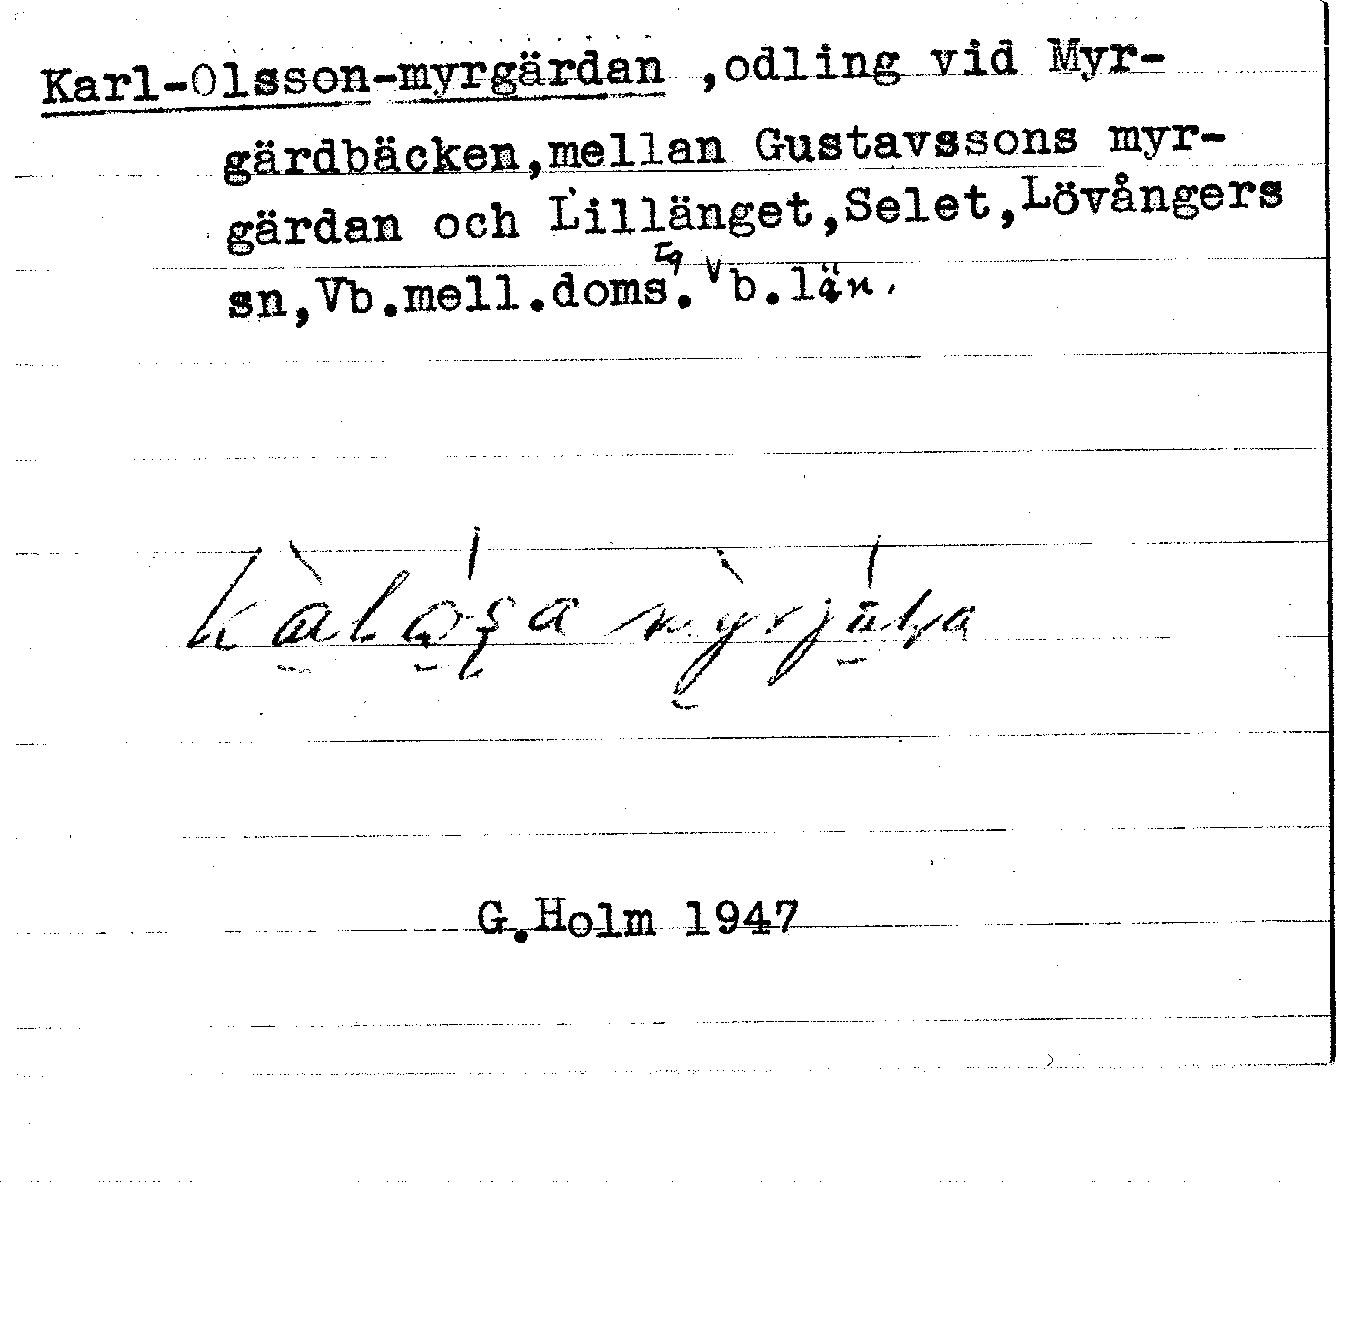 Karl-Olsson-myrgärdan ,odling vid Myr-
gärdbäcken,mellan Gustavssons myr-
gärdan och Lillänget,Selet,Lövångers
sn,Vb.mell.doms. Vb.län.
G.Holm 1947